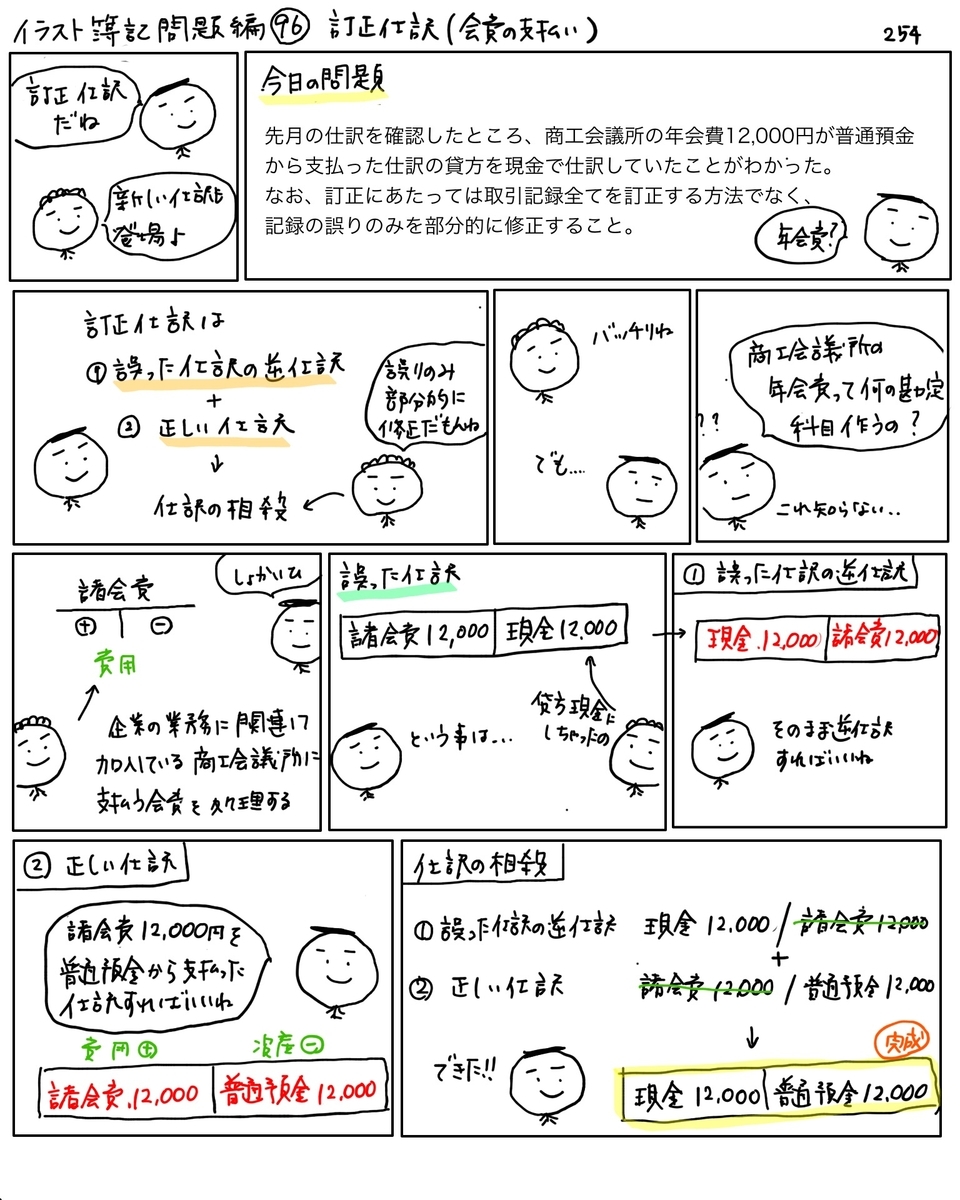 イラスト簿記問題編96 訂正仕訳(会費の支払い)
254
訂正仕訳
だね
新しい仕訳も
登場よ
今日の問題
先月の仕訳を確認したところ、商工会議所の年会費12,000円が普通預金
から支払った仕訳の貸方を現金で仕訳していたことがわかった。
なお、訂正にあたっては取引記録全てを訂正する方法でなく、
記録の誤りのみを部分的に修正すること。
年会費?
訂正仕訳は
① 誤った仕訳の逆仕訳
+
② 正しい仕訳
↓
仕訳の相殺
誤りのみ
部分的に
修正だもんね
バッチリね
でも....
商工会議所の
年会費って何の勘定
科目作うの?
??
これ知らない..
諸会費
+ -
費用
しょかいひ
企業の業務に関連して
加入している商工会議所に
支払う会費を処理する
誤った仕訳
諸会費12,000 現金12,000
という事は...
貸方現金に
しちゃったの
① 誤った仕訳の逆仕訳
現金.12,000 諸会費12,000
そのまま逆仕訳
すればいいね
② 正しい仕訳
諸会費12,000円を
普通預金から支払った
仕訳すればいいね
費用+ 資産-
諸会費.12,000 普通預金12,000
仕訳の相殺
①誤った仕訳の逆仕訳 現金12,000/諸会費12,000
+
② 正しい仕訳 諸会費12,000/普通預金12,000
↓
完成
できた!!
現金12,000 普通預金12,000